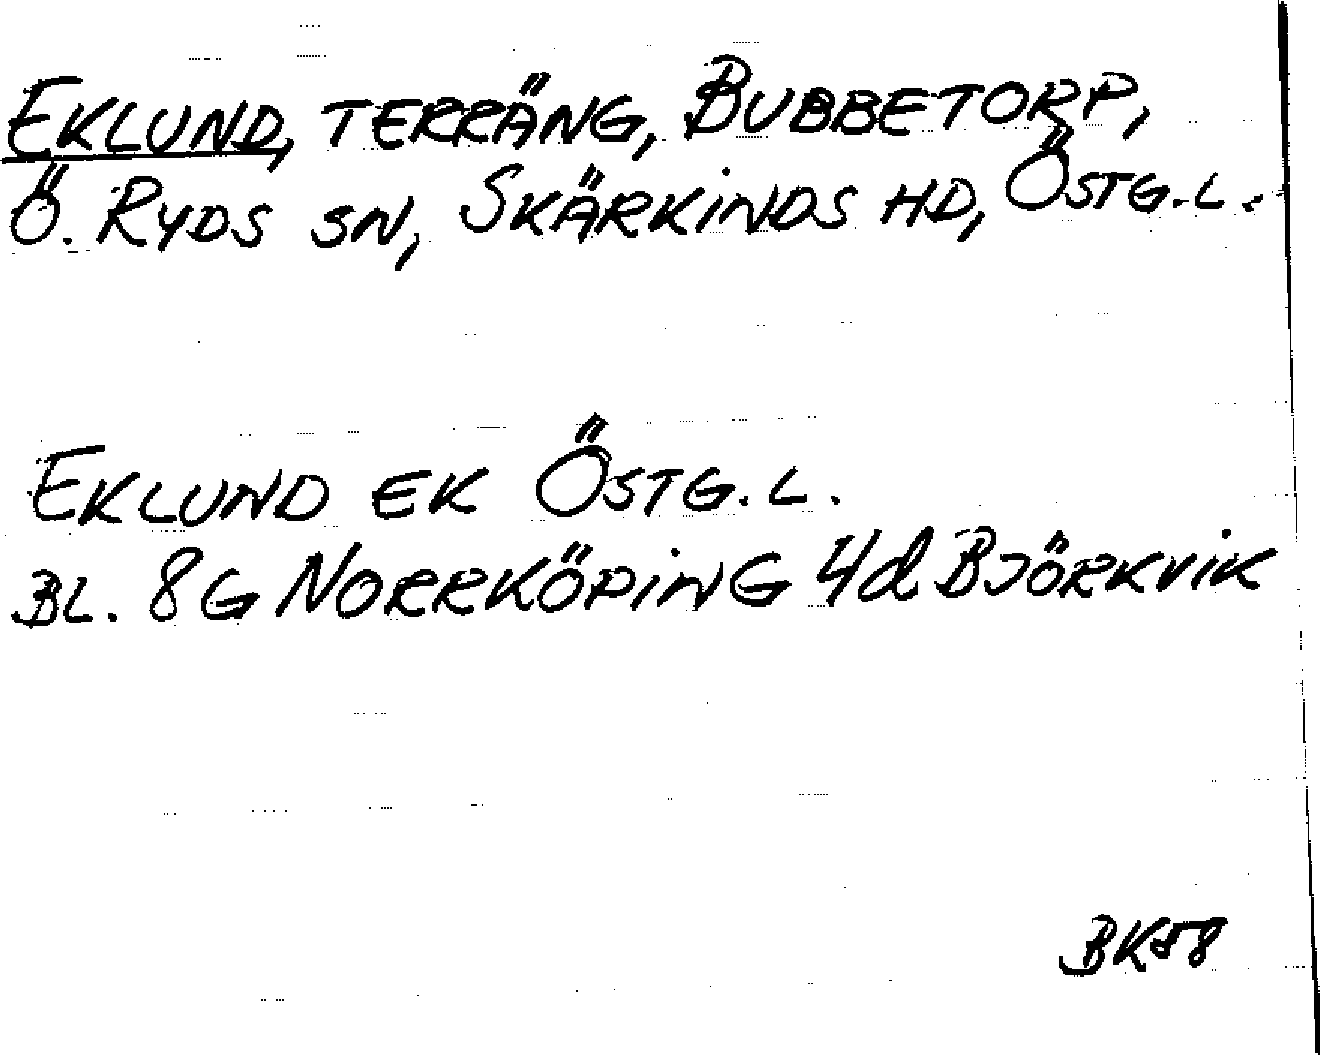 EKLUND, TERRÄNG, BUBBETORP,
Ö. RYDS SN, SKÄRKINDS HD, ÖSTG.L.
EKLUND EK ÖSTG.L.
BL. 8G NORRKÖPING 4d BJÖRKVIK
BK58